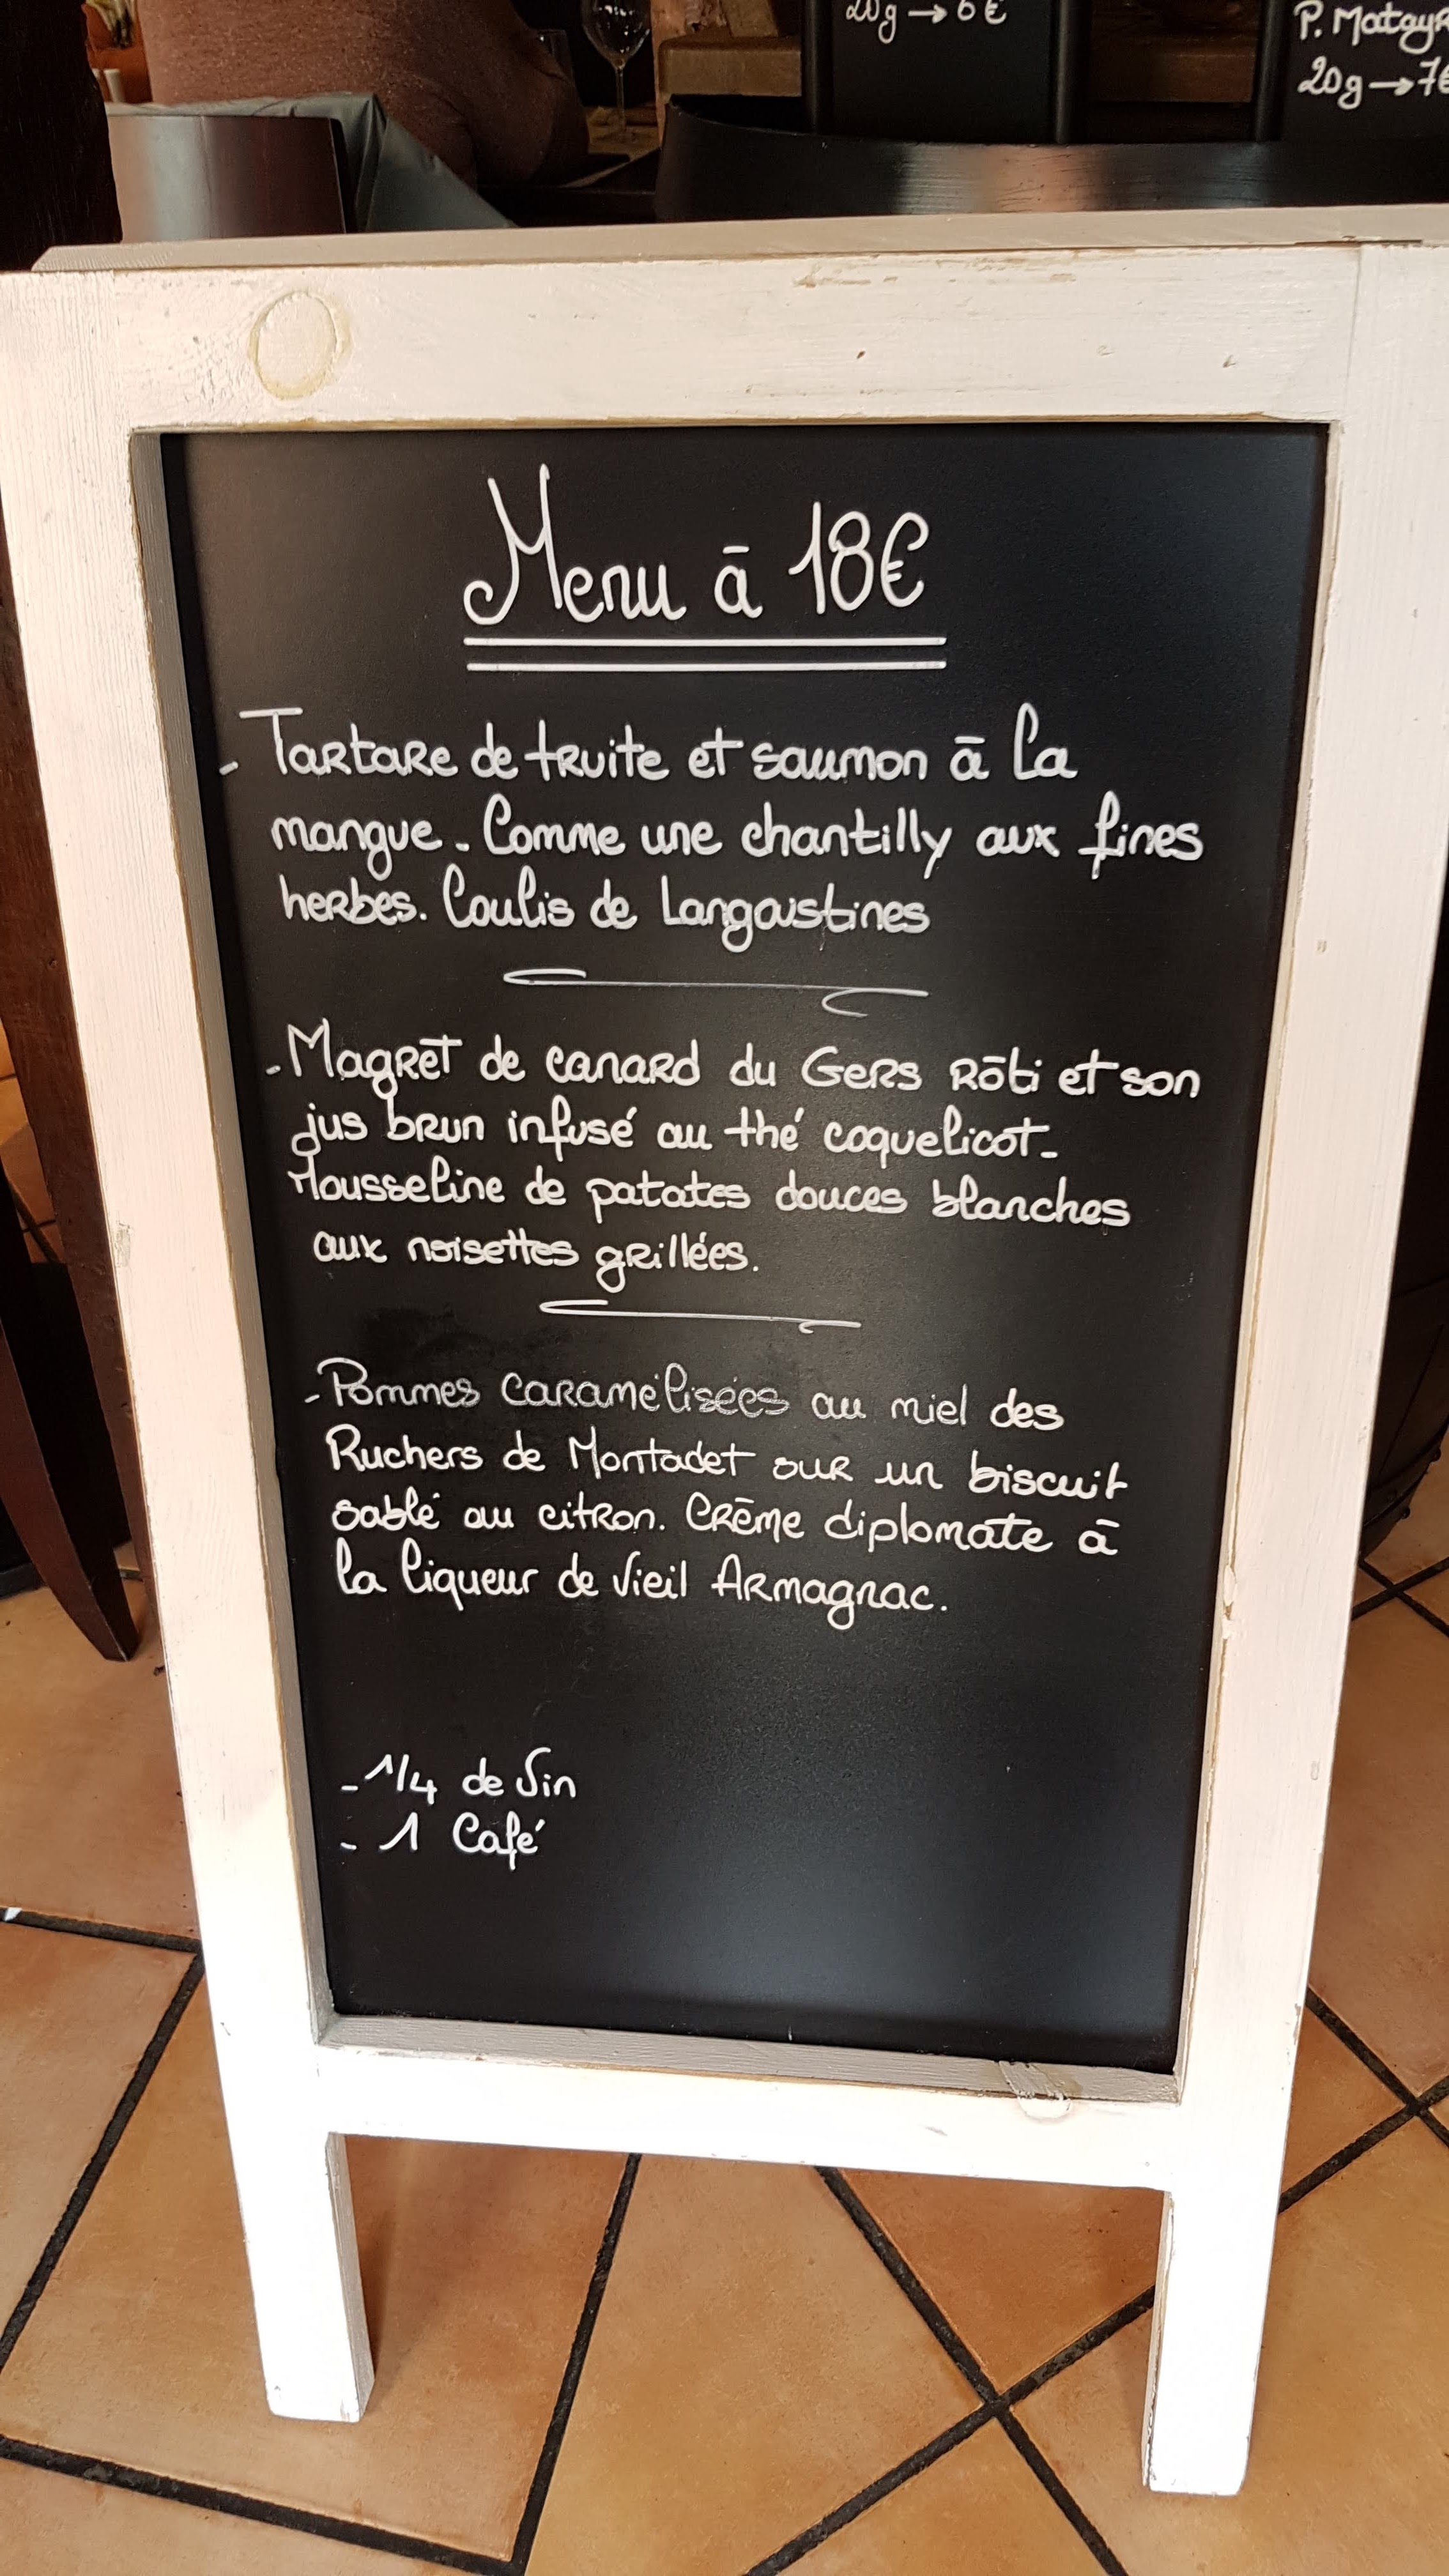 20g → 6€
P. Matayr
20g → 7€
Menu à 18€
- Tartare de truite et saumon à la
mangue. Comme une chantilly aux fines
herbes. Coulis de Langoustines
- Magret de canard du Gers Rôti et son
jus brun infusé au thé coquelicot.
Mousseline de patates douces blanches
aux noisettes grillées.
- Pommes caramélisées au miel des
Ruchers de Montadet sur un biscuit
sablé au citron. Crème diplomate à
la liqueur de Vieil Armagnac.
- 1/4 de Vin
- 1 Café